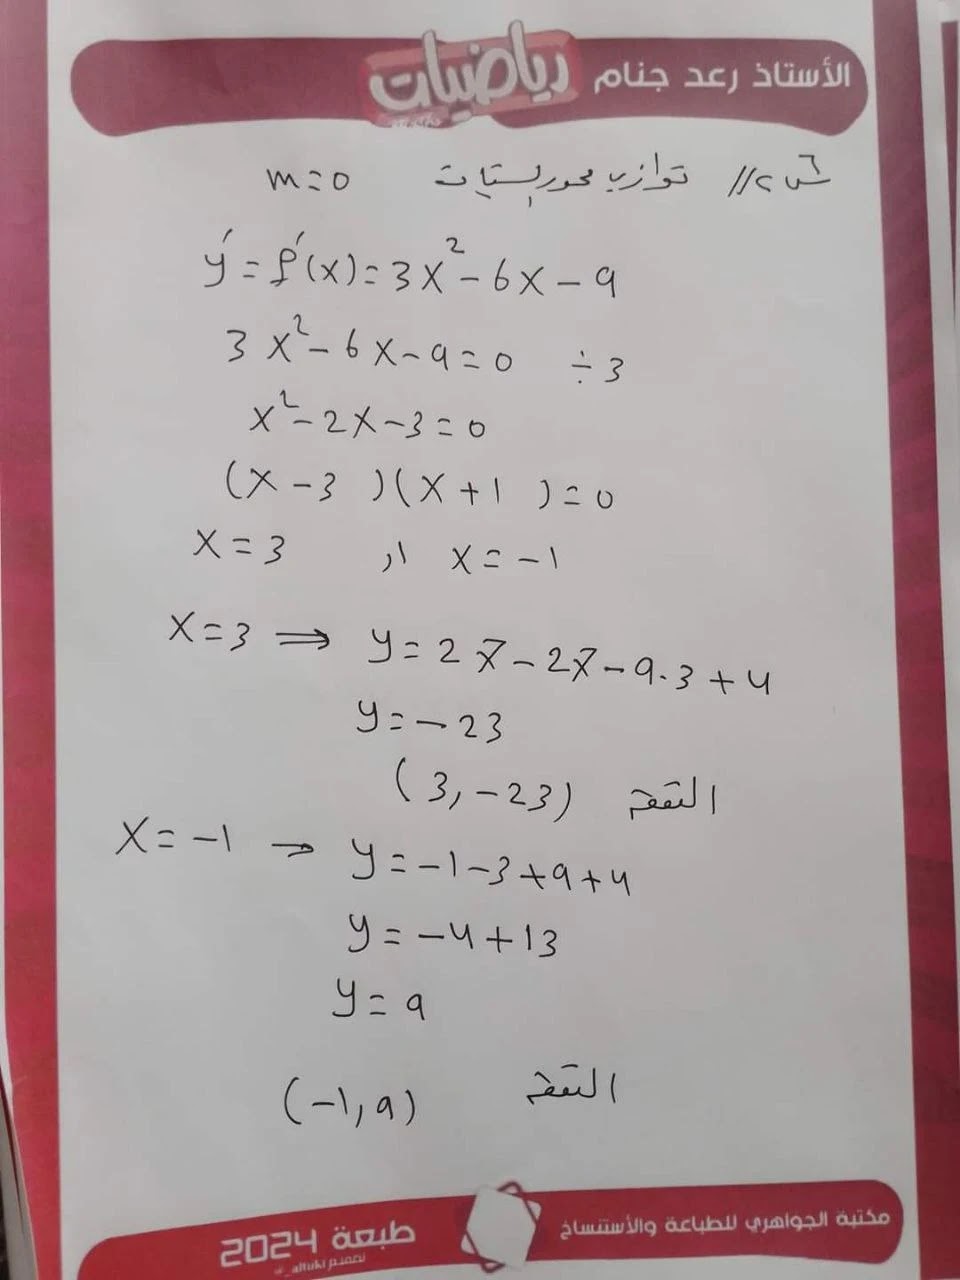 الأستاذ رعد جنام رياضيات
توازي محور السينات m=0
y′=f′(x)=3x²-6x-9
3x²-6x-9=0 ÷3
x²-2x-3=0
(x-3)(x+1)=0
x=3 او x=-1
x=3 ⇒ y=27-27-9.3+4
y=-23
(3,-23) النقطة
x=-1 → y=-1-3+9+4
y=-4+13
y=9
(-1,9) النقطة
مكتبة الجواهري للطباعة والأستنساخ
طبعة 2024
تصميم altuki_